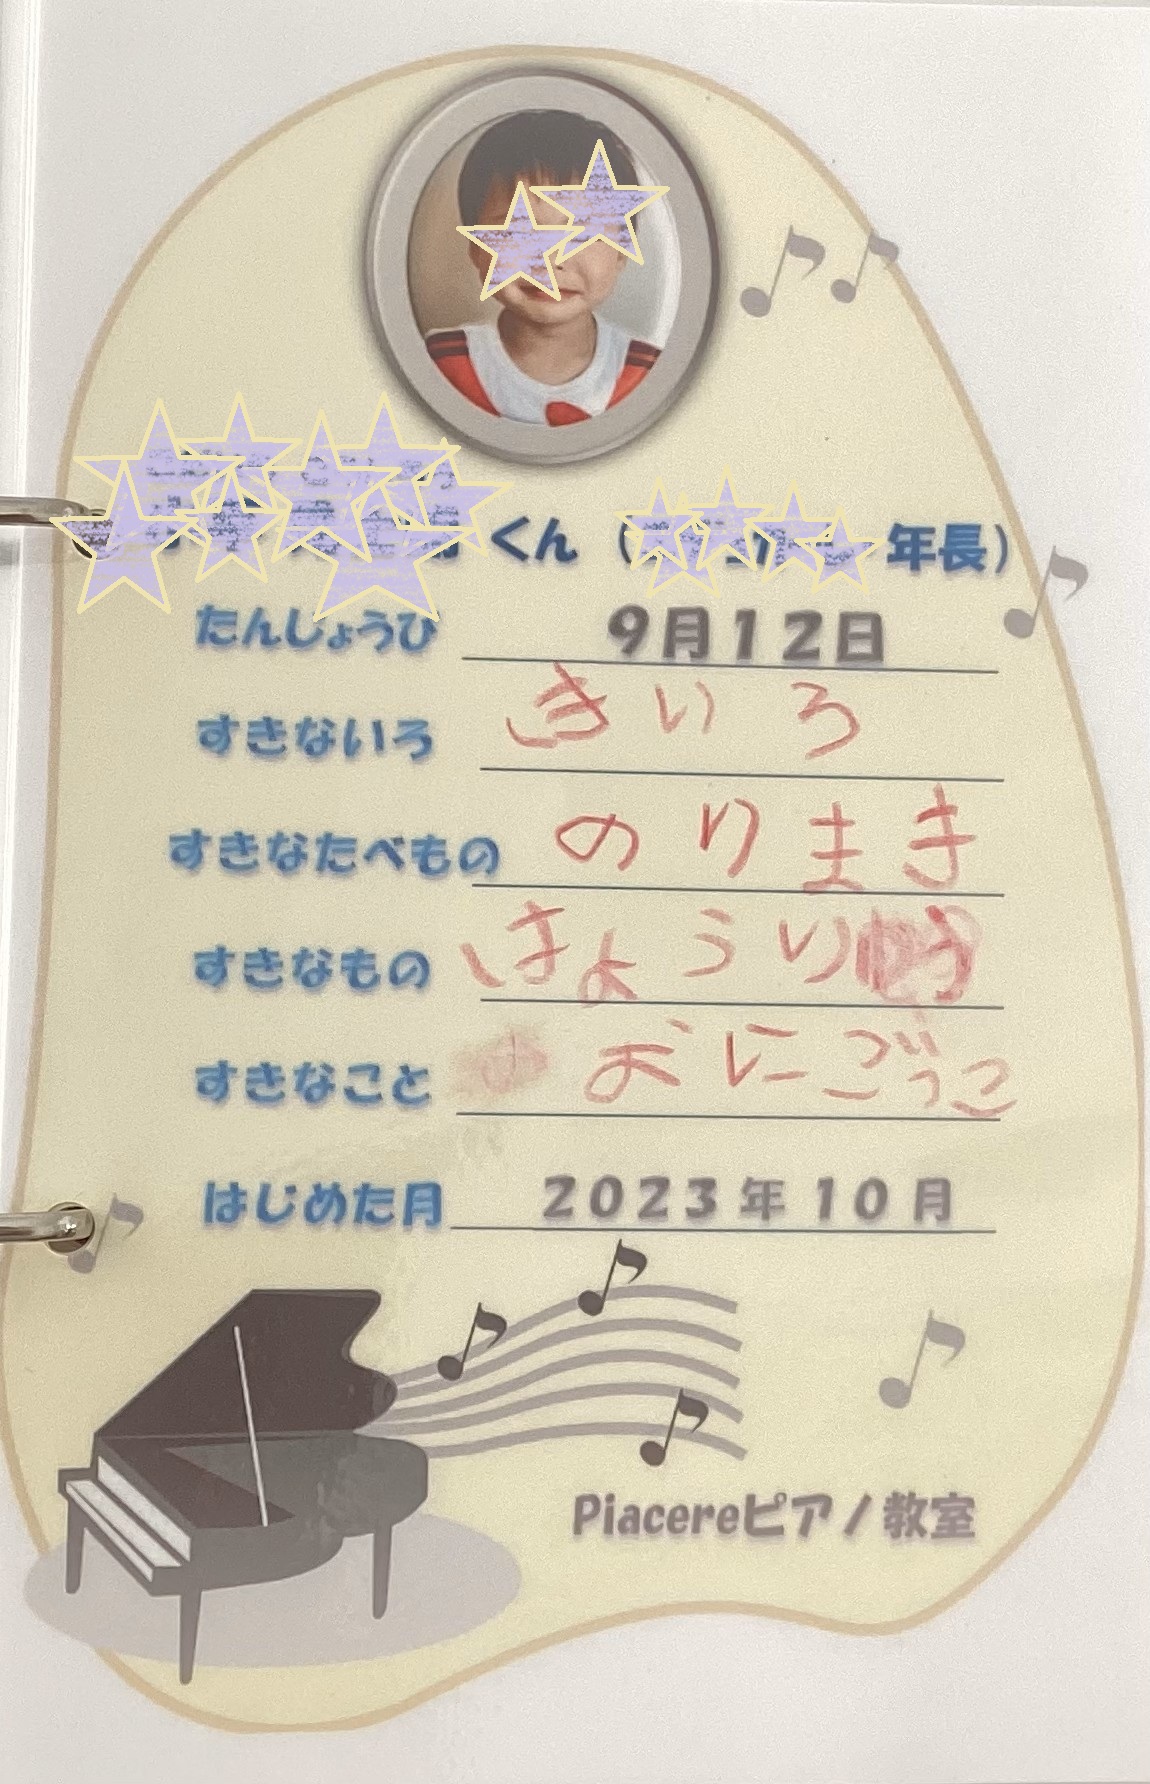 くん （ 年長）
たんじょうび 9月12日
すきないろ きいろ
すきなたべもの のりまき
すきなもの きょうりゅう
すきなこと おにごっこ
はじめた月 2023年10月
Piacereピアノ教室